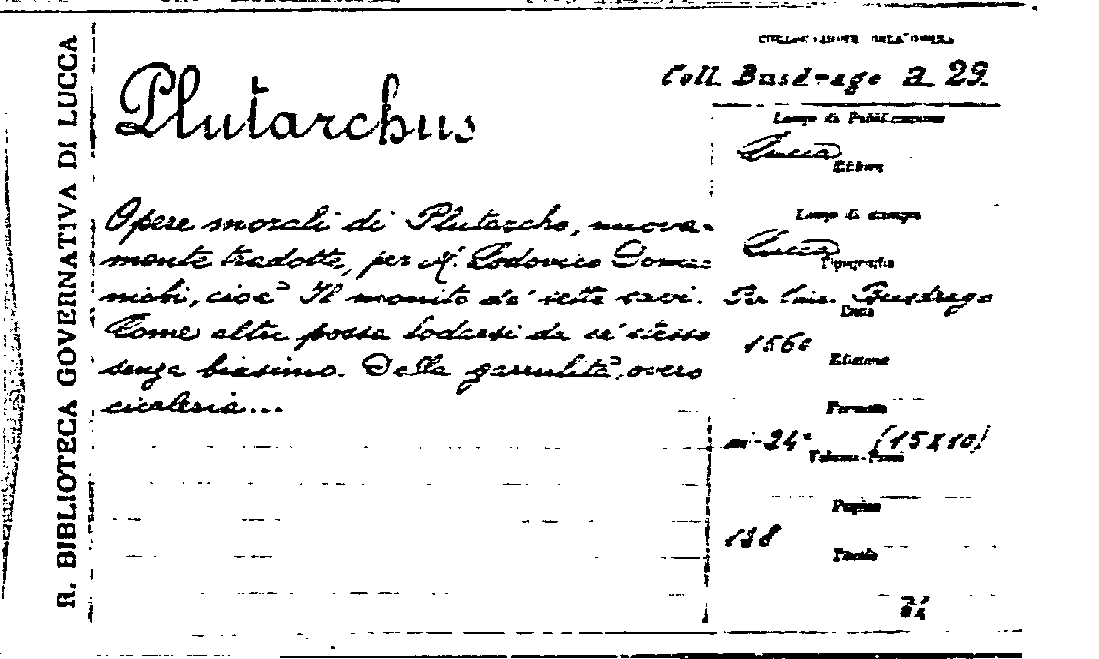 R. BIBLIOTECA GOVERNATIVA DI LUCCA
Plutarchus
Opere morali di Plutarcho, nuova-
mente tradotte, per M. Lodovico Dome-
nichi, cioè Il monito de' sette savi.
Come altri possa lodarsi da se' stesso
senza biasimo. Della garrulità, overo
cicaleria...
COLLOCAZIONE DELL'OPERA
Coll. Busdrago a. 29.
Luogo di Pubblicazione
Lucca
Editore
Luogo di stampa
Lucca
Tipografia
Per Vinc. Busdrago
Data
1560
Edizione
Formato
in-24° (15X10)
Volume-Parti
Pagine
138
Tavole